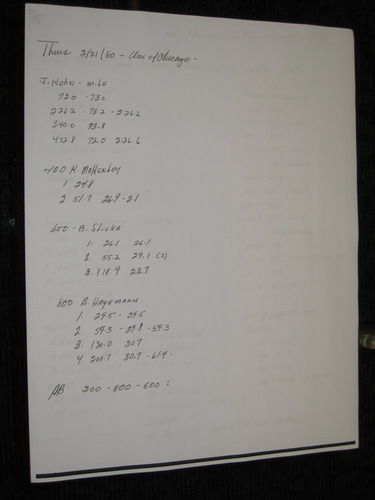 Thurs 2/21/80 - Univ of Chicago -
J. Kohn - mile
73.0 - 73.0
2:26.2 - 73.2 - 2:26.2
3:40.0 73.8
4:52.8 72.8 2:26.6
400 H.
1 24.8
2 51.7 26.9 - 2.1
600 - B. Slivka
1. 26.1 26.1
2. 55.2 29.1 (3)
3. 1:18.9 23.7
800 A. Hagemann
1. 29.5 - 29.5
2. 59.3 - 29.8 - 59.3
3. 1:30.0 30.7
4. 2:00.7 30.7 - 61.4
300 - 800 - 600 :